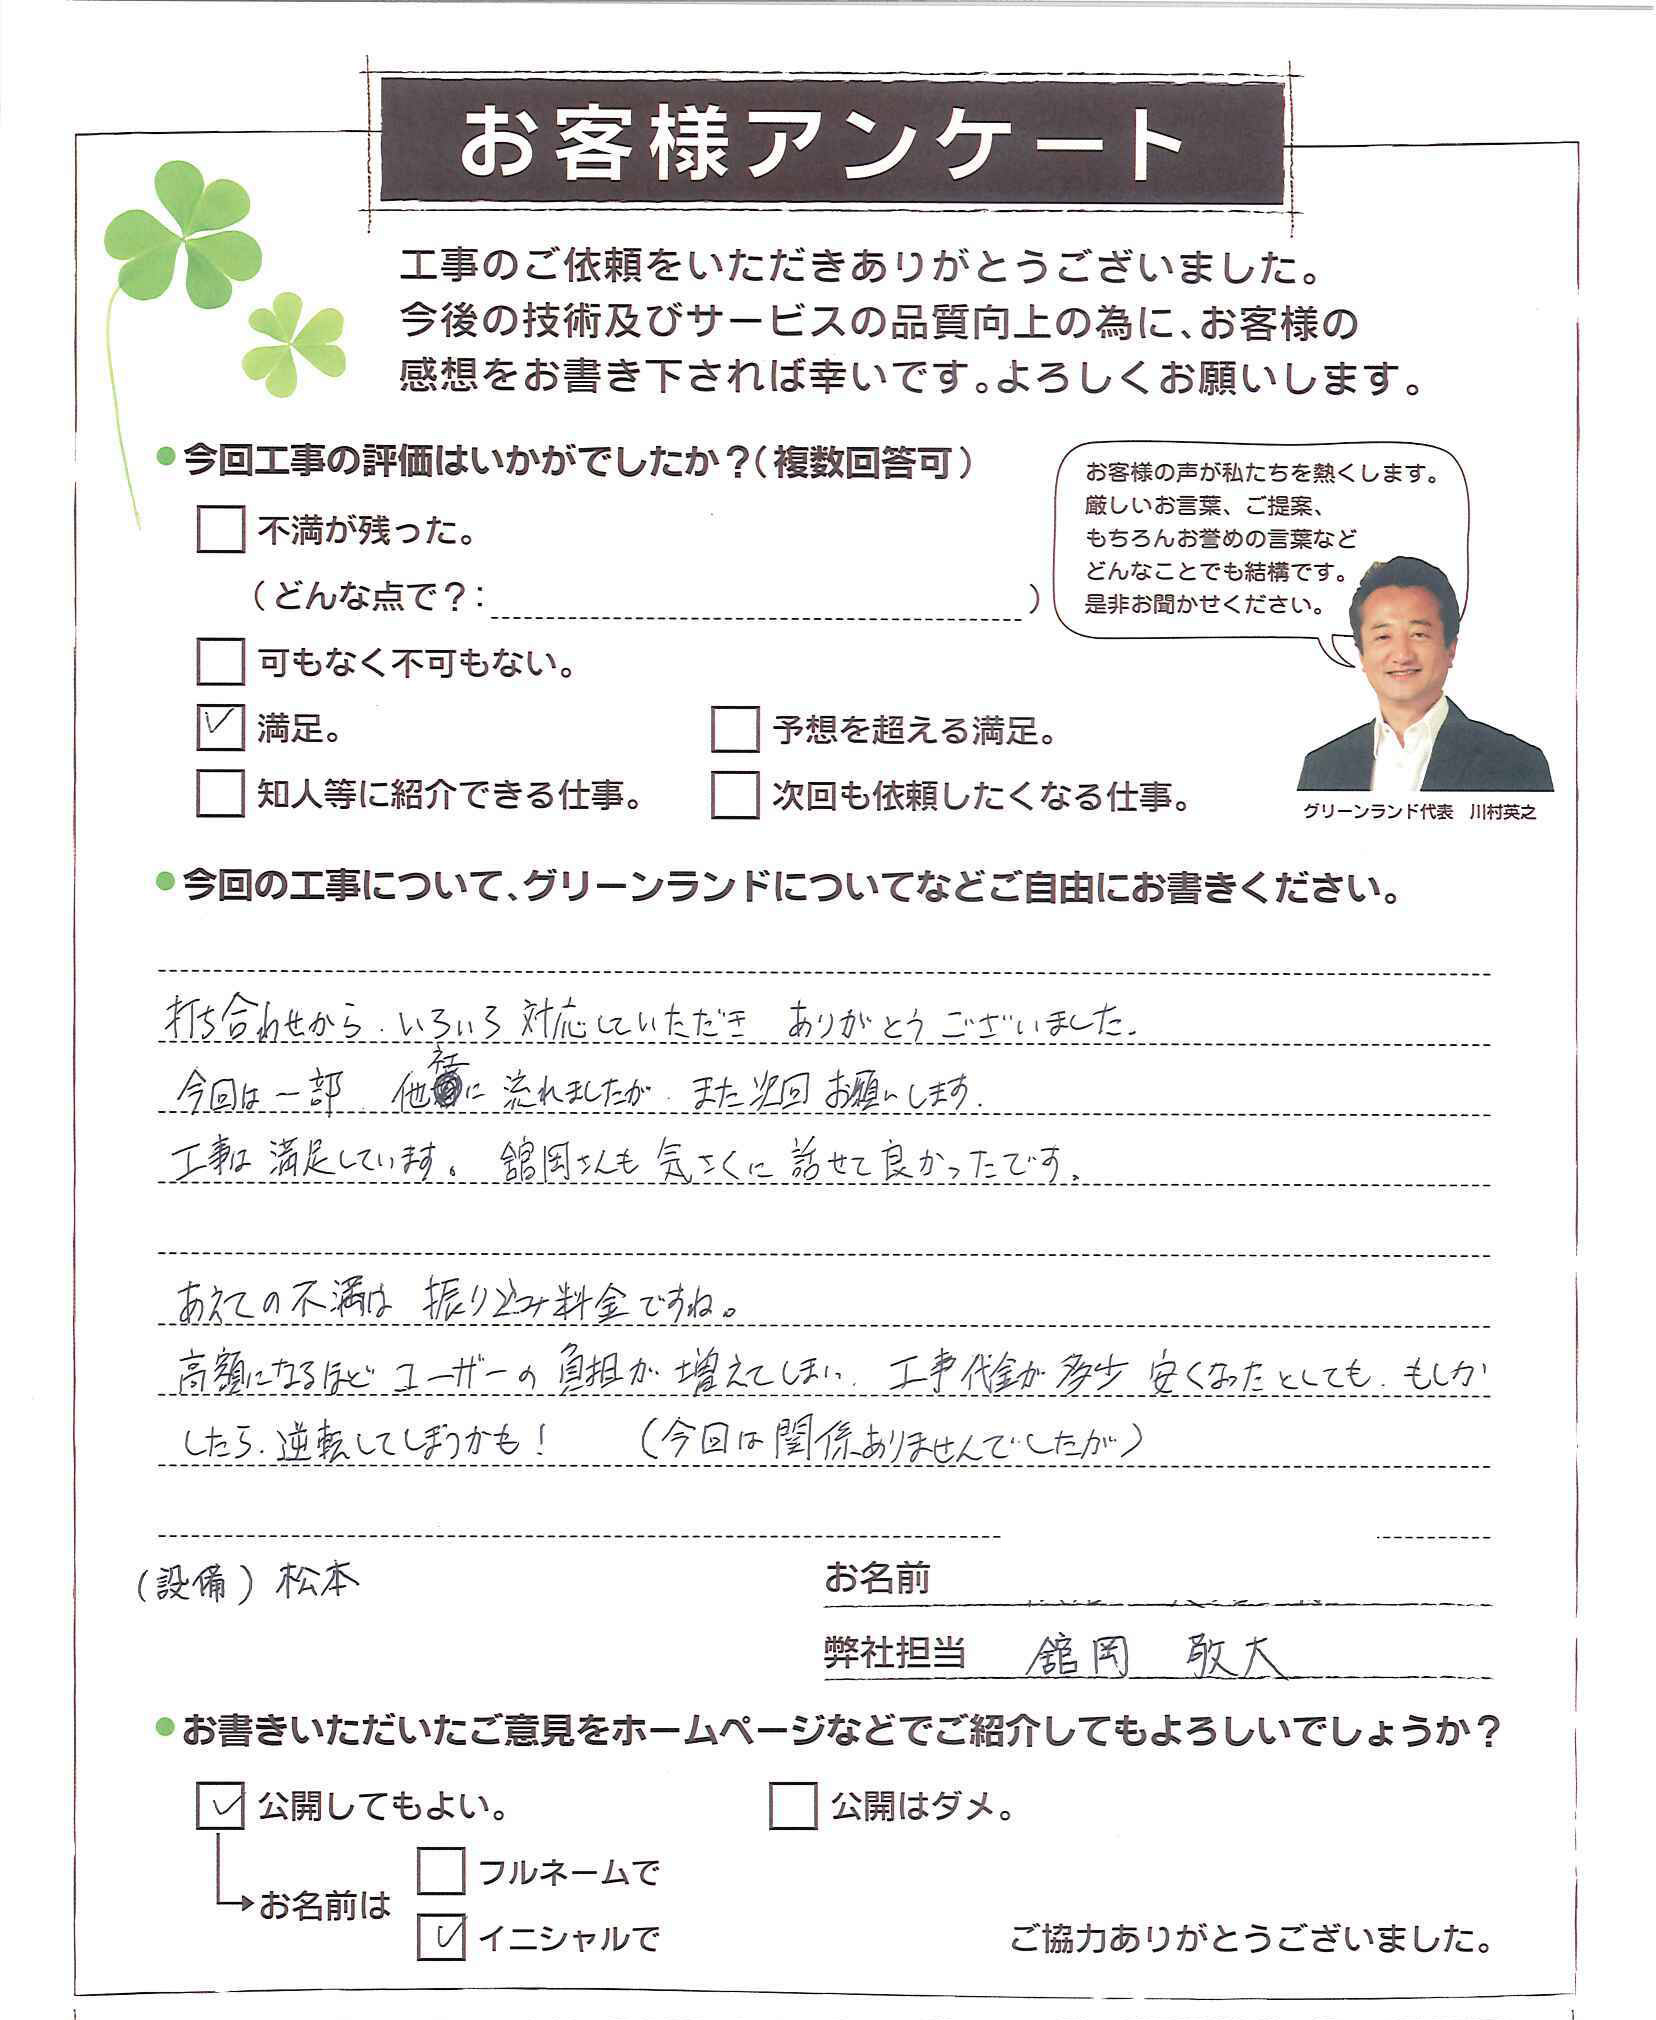 お客様アンケート
工事のご依頼をいただきありがとうございました。
今後の技術及びサービスの品質向上の為に、お客様の
感想をお書き下されば幸いです。よろしくお願いします。
●今回工事の評価はいかがでしたか？（複数回答可）
不満が残った。
（どんな点で？：　）
可もなく不可もない。
満足。
予想を超える満足。
知人等に紹介できる仕事。
次回も依頼したくなる仕事。
お客様の声が私たちを熱くします。
厳しいお言葉、ご提案、
もちろんお誉めの言葉など
どんなことでも結構です。
是非お聞かせください。
グリーンランド代表　川村英之
●今回の工事について、グリーンランドについてなどご自由にお書きください。
打ち合わせから、いろいろ対応していただき ありがとうございました。
今回は一部、他社に流れましたが、また次回お願いします。
工事は満足しています。舘岡さんも気さくに話せて良かったです。
あえての不満は 振り込み料金ですね。
高額になるほどユーザーの負担が増えてしまい、工事代金が多少安くなったとしても、もしか
したら、逆転してしまうかも！　（今回は関係ありませんでしたが）
（設備）松本
お名前
弊社担当　舘岡 敬大
●お書きいただいたご意見をホームページなどでご紹介してもよろしいでしょうか？
公開してもよい。
公開はダメ。
お名前は
フルネームで
イニシャルで
ご協力ありがとうございました。